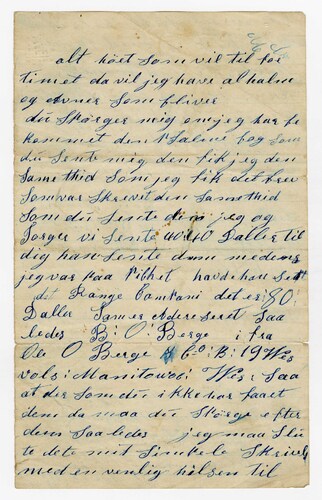 alt höet som vil til föe
timet da vil jeg have al halm
og avner som bliver
du Skörger mig om jeg har be
kommet den Psalme bog som
du Sente mig den fik jeg den
Samethid som jeg fik det brev
Som var Skrivet den Samthid
Som du Sente jeg og
Torger vi Sente 40 Daller til
dig han Sente dem medens
jeg var paa havde han Sent
det Range Compani det er 80
Daller Som er adereseret Saa
ledes B. O. Berge i fra
Ole O Berge B. 19
Manitowoc Wes: Saa
at der Som du ikke har faaet
dem da maa du Skörge efter
dem Saaledes jeg maa Slu
te dette mit Simpele Skrivelse
med en venlig helsen til